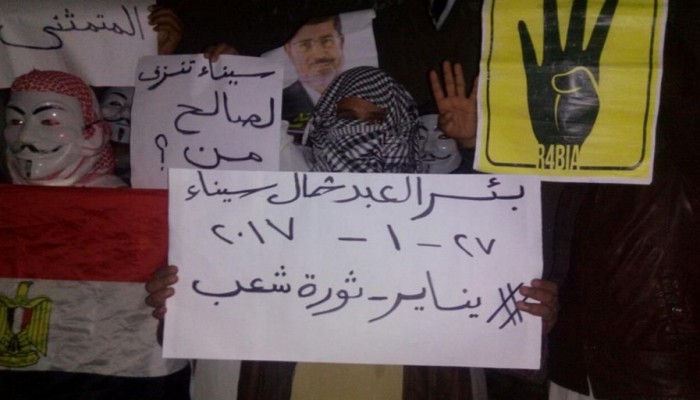 المتمثنى
سيناء تنزف
لصالح
من ؟
R4BIA
بئر العبد شمال سيناء
٢٧ - ١ - ٢٠١٧
# يناير - ثورة شعب